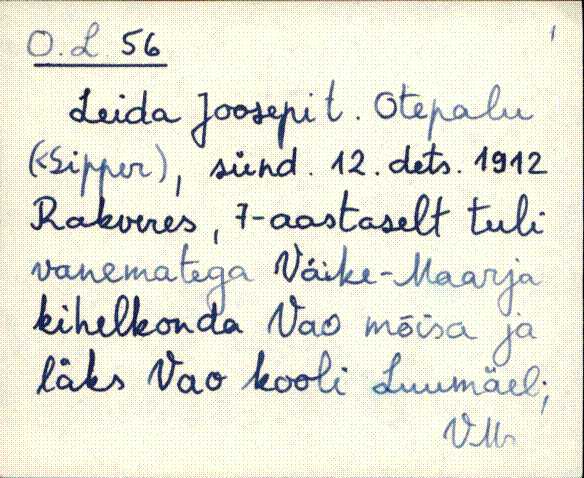 O.L. 56
1
Leida Joosepi t. Otepalu
(<Sipper), sünd. 12. dets. 1912
Rakveres, 7-aastaselt tuli
vanematega Väike-Maarja
kihelkonda Vao mõisa ja
läks Vao kooli Luumäel;
VMr